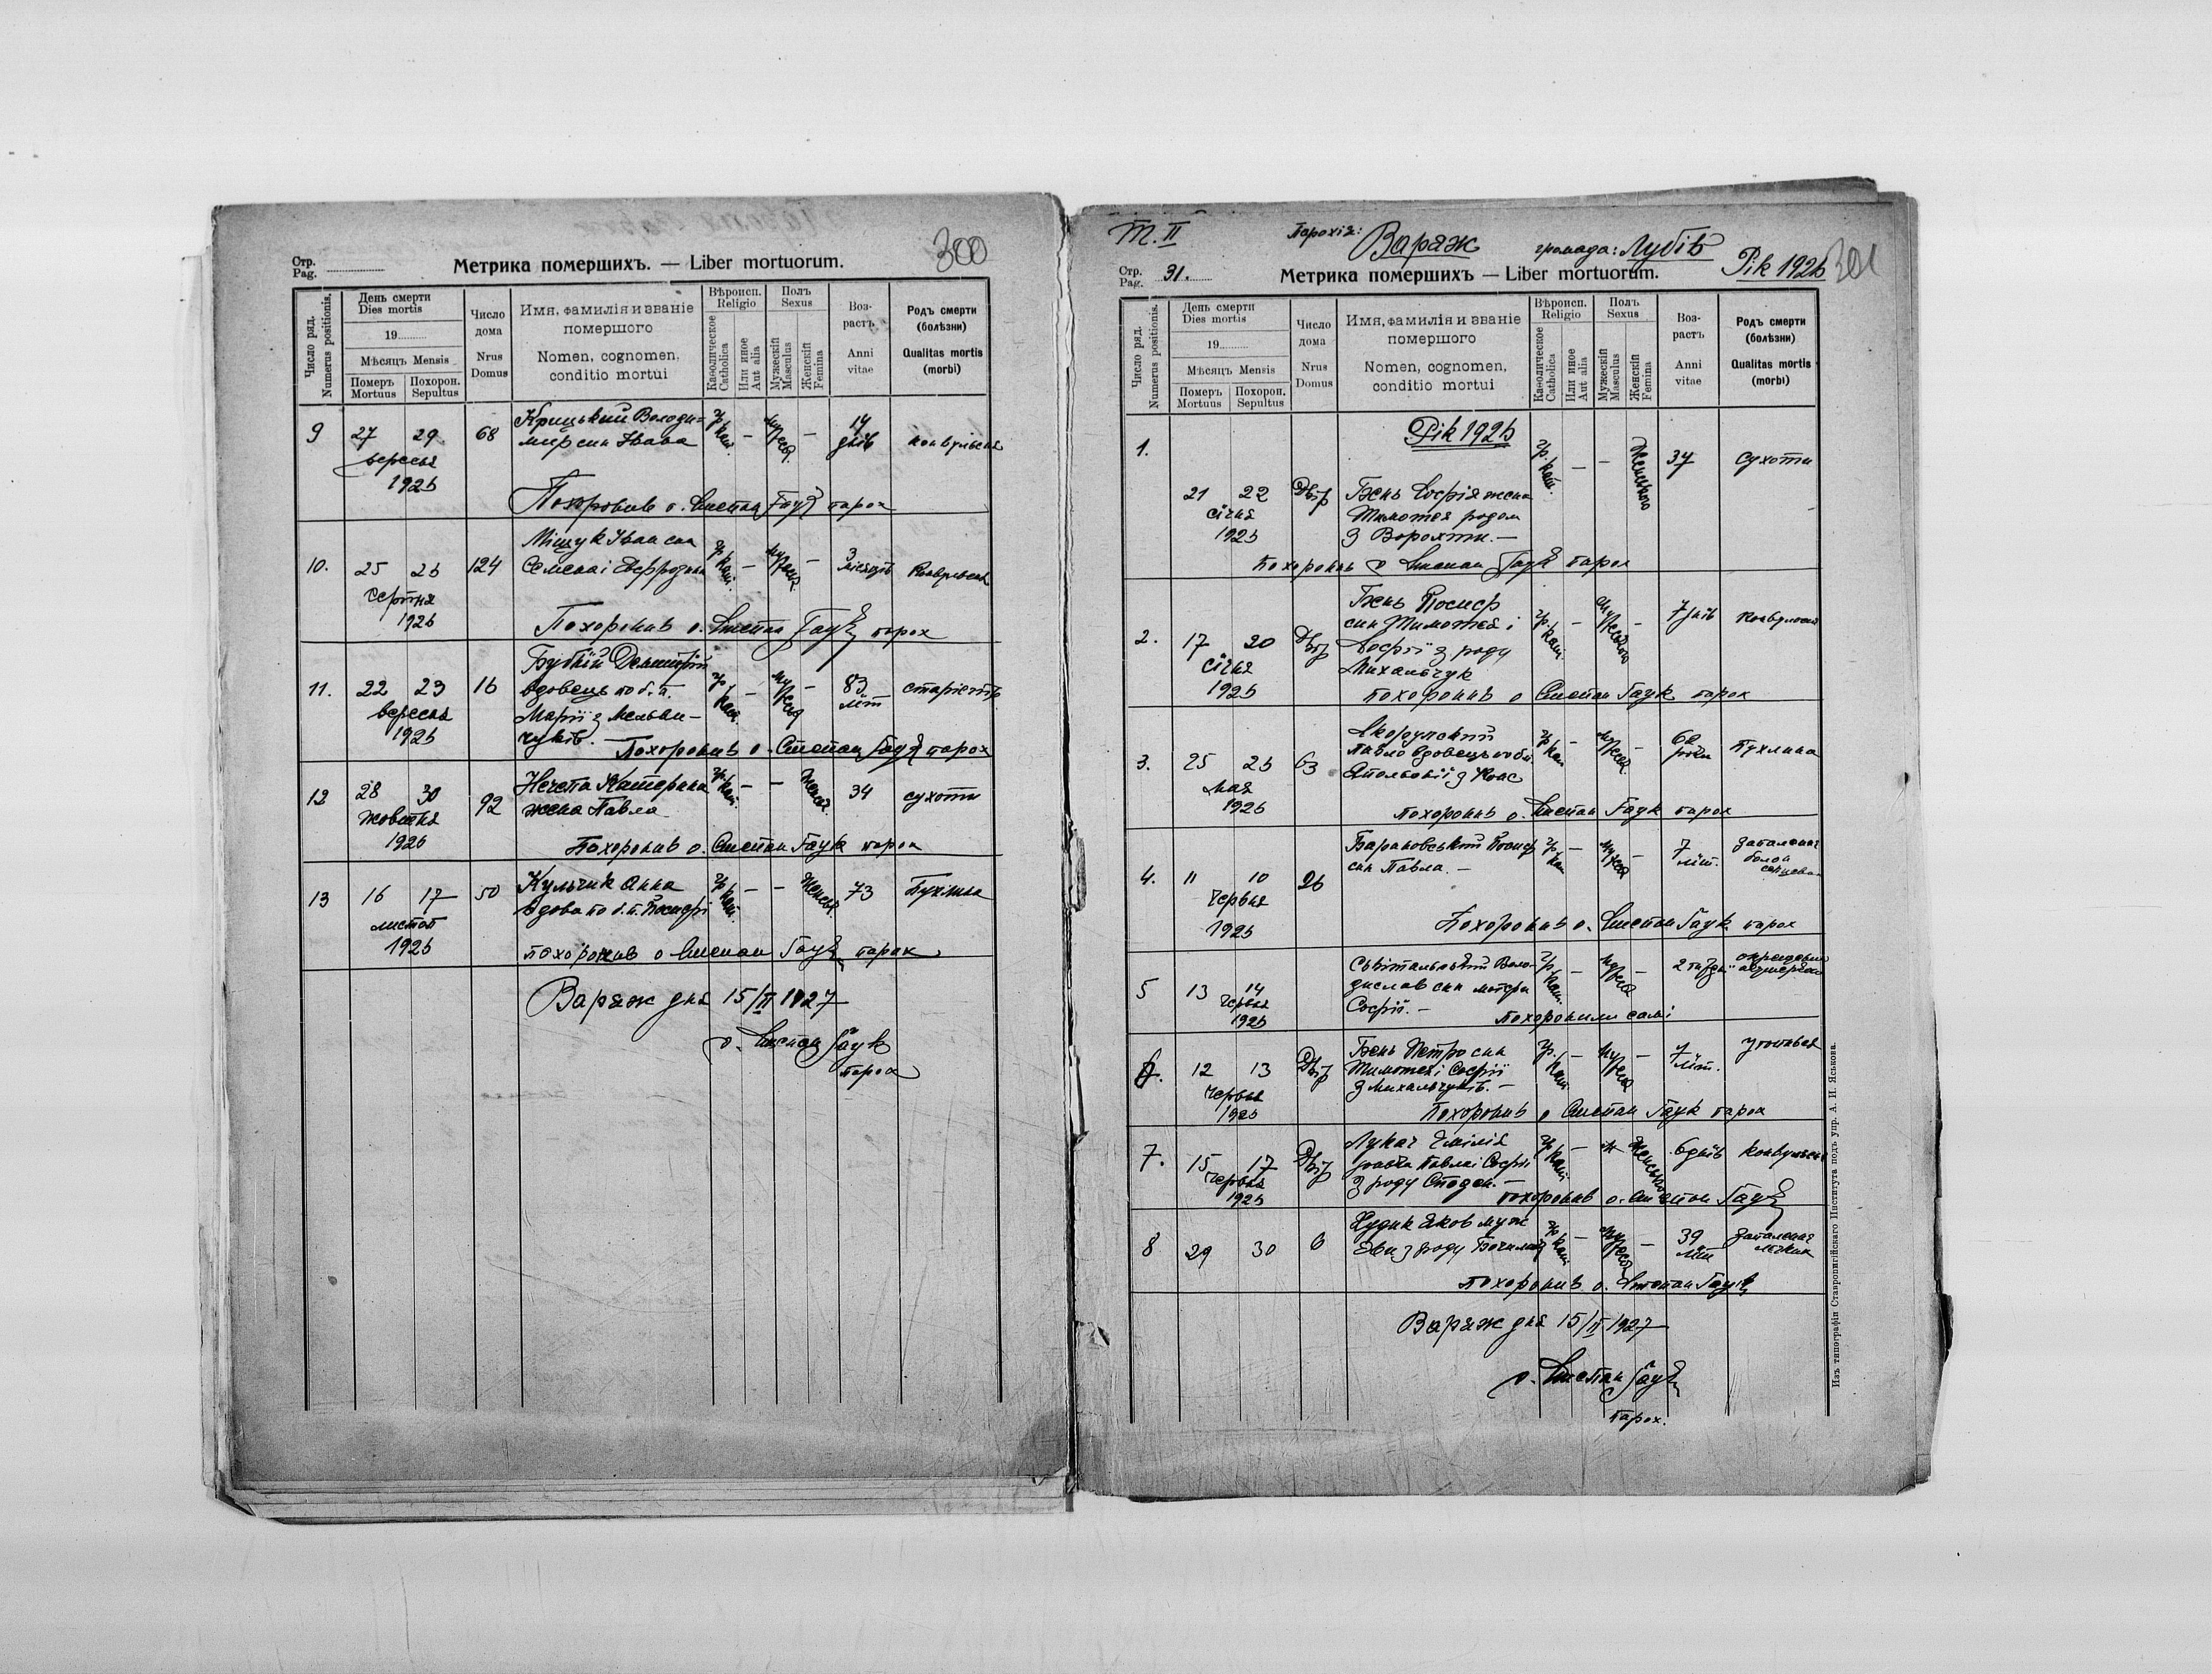 300
Стр.
Pag.
Метрика помершихъ. — Liber mortuorum.
Число ряд.
Numerus positionis.
День смерти
Dies mortis
19
Мѣсяцъ Mensis
Померъ
Mortuus
Похорон.
Sepultus
Число
дома
Nrus
Domus
Имя, фамилія и званіе
помершого
Nomen, cognomen,
conditio mortui
Вѣроисп.
Religio
Каѳолическое
Catholica
Или иное
Aut alia
Полъ
Sexus
Мужескій
Masculus
Женскій
Femina
Воз-
растъ
Anni
vitae
Родъ смерти
(болѣзни)
Qualitas mortis
(morbi)
9 27 29 68 Крицький Володи- гр. — — 14
мир син Івана кат. днів конвульсия
вересня
1926
Похоронив о. Степан Гаук парох
Міщук Іван син
10. 25 26 124 Семена і гр. кат. — — 3 місяці конвульсия
серпня
1926
Похоронив о. Степан Гаук парох
Дмитрій
11. 22 23 16 вдовець по б. п. гр. кат. — — 83 літ старість
вересня Марії з Мельни-
1926 чуків. — Похоронив о. Степан Гаук парох
12 28 30 92 Нечепа Катерина гр. кат. — — 34 сухоти
жовтня жена Павла
1926
Похоронив о. Степан Гаук парох
13 16 17 50 Кульчик Анна гр. кат. — — 73 Пухлина
вдова по б. п. Йосифі
листоп
1926 похоронив о Степан Гаук парох
Варяж дня 15/II 1927
о. Степан Гаук
парох
Т. II
Парохія: Варяж громада: Лубів Рік 1926 301
Стр.
Pag. 31.
Метрика помершихъ — Liber mortuorum.
Число ряд.
Numerus positionis.
День смерти
Dies mortis
19
Мѣсяцъ Mensis
Померъ
Mortuus
Похорон.
Sepultus
Число
дома
Nrus
Domus
Имя, фамилія и званіе
помершого
Nomen, cognomen,
conditio mortui
Вѣроисп.
Religio
Каѳолическое
Catholica
Или иное
Aut alia
Полъ
Sexus
Мужескій
Masculus
Женскій
Femina
Воз-
растъ
Anni
vitae
Родъ смерти
(болѣзни)
Qualitas mortis
(morbi)
Рік 1926
1. гр. кат. — — 37 сухоти
21 22 Двір Бень Софія жена
січня Тимотея родом
1926 з Ворохти. —
Похоронив о Степан Гаук парох
Бень Йосиф
син Тимотея і
2. 17 20 Двір Софії з роду гр. кат. — — 7 днів конвульсия
січня Михальчук
1926 похоронив о Степан Гаук парох
3. 25 26 63 Павло вдовець по бп. гр. кат — — 62 роки Пухлина
мая
1926 похоронив о. Степан Гаук парох
4. 11 10 26 Барановський Йосиф гр. кат — — 7 літ. запалення
син Павла. —
червня
1926
Похоронив о. Степан Гаук парох
5 13 14 Воло- гр. кат. — — 2
червня дислав син матери
1926 Софії. — похоронили самі
6. 12 13 Двір Бень Петро син гр. кат — — 7 літ.
червня Тимотея і Софії
1926 з Михальчуків. —
Похоронив о Степан Гаук парох
7. 15 17 Двір Лукач Емілія гр. кат. — 6 днів конвульсия
червня дочка Павла і Софії
1926 з роду
похоронив о. Степан Гаук
8 29 30 6 Яков муж гр. кат — — 39 літ запалення
Еви з роду
похоронив о. Степан Гаук
Варяж дня 15/II 1927
о. Степан Гаук
парох.
Изъ типографіи Ставропигійскаго Института подъ упр. А. И. Яськова.